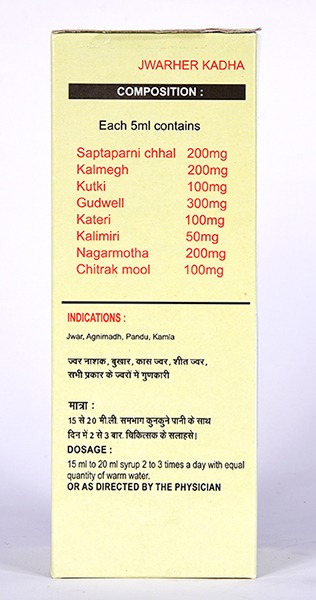 JWARHER KADHA
COMPOSITION :
Each 5ml contains
Saptaparni chhal 200mg
Kalmegh 200mg
Kutki 100mg
Gudwell 300mg
Kateri 100mg
Kalimiri 50mg
Nagarmotha 200mg
Chitrak mool 100mg
INDICATIONS :
Jwar, Agnimadh, Pandu, Kamla
ज्वर नाशक, बुखार, कास ज्वर, शीत ज्वर,
सभी प्रकार के ज्वरों में गुणकारी
मात्रा :
15 से 20 मी.ली. समभाग कुनकुने पानी के साथ
दिन में 2 से 3 बार. चिकित्सक के सलाहसे।
DOSAGE :
15 ml to 20 ml syrup 2 to 3 times a day with equal
quantity of warm water.
OR AS DIRECTED BY THE PHYSICIAN